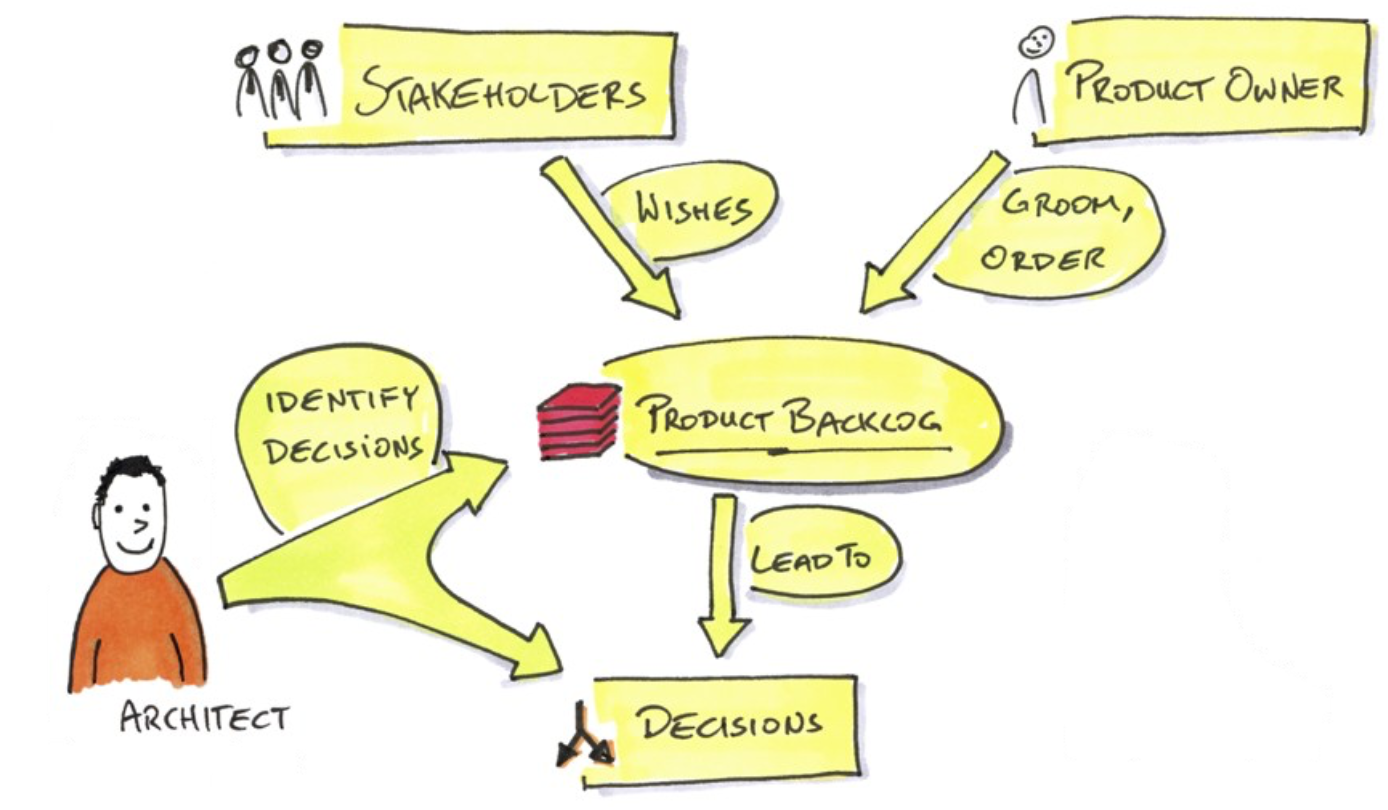 STAKEHOLDERS
PRODUCT OWNER
WISHES
GROOM,
ORDER
IDENTIFY
DECISIONS
PRODUCT BACKLOG
LEAD TO
ARCHITECT
DECISIONS